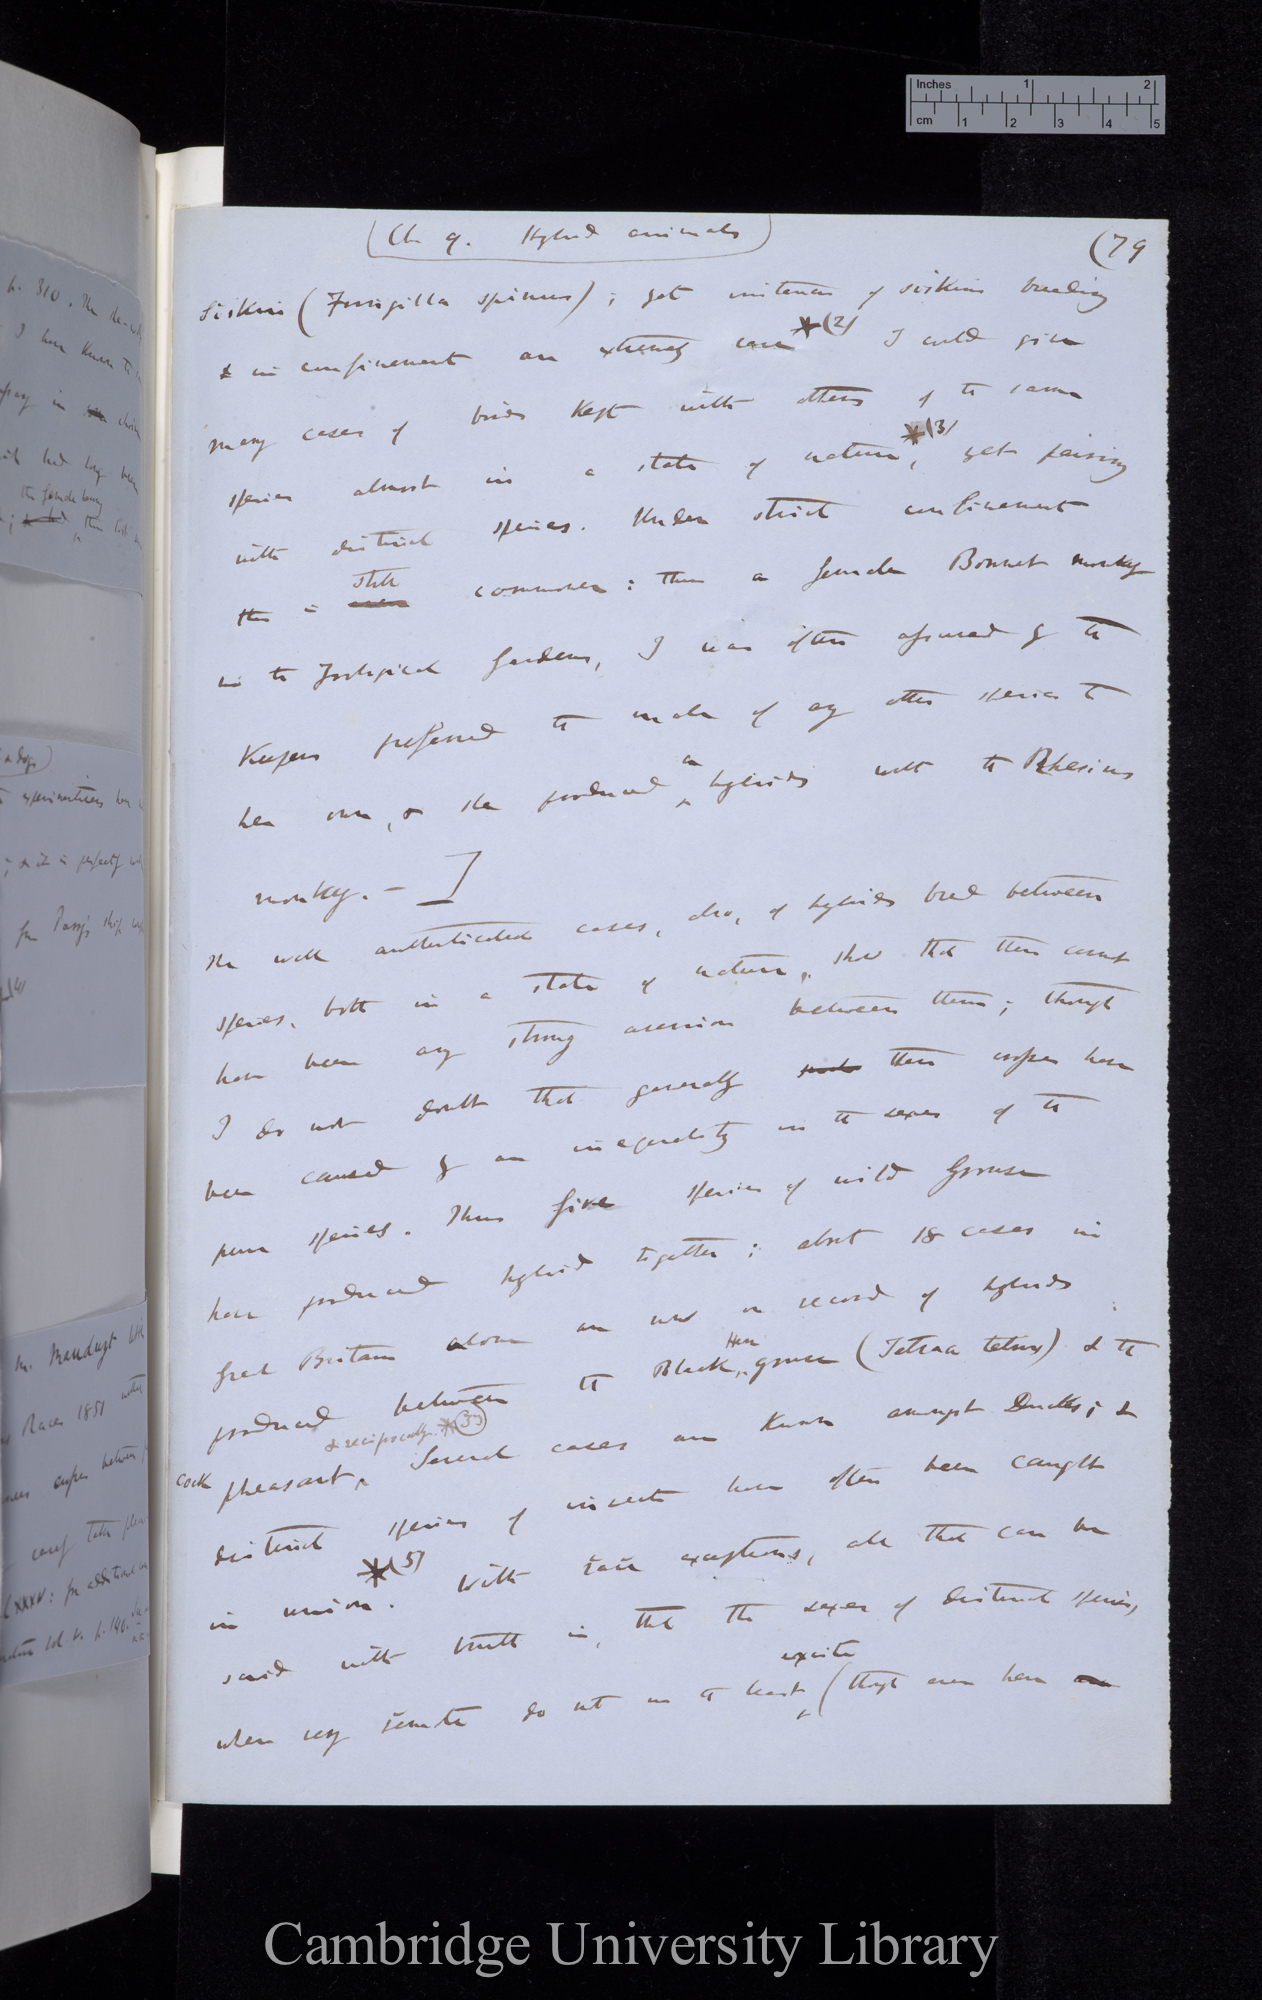 Inches 1 2
cm 1 2 3 4 5
(Ch 9. Hybrid animals)
(79
Siskin (Fringilla spinus); yet instances of siskins breeding
& in confinement are extremely rare *(2) I could give
many cases of birds kept with others of the same
species almost in a state of nature *(3), yet pairing
with distinct species. Under strict confinement
this is even still commoner: thus a female Bonnet monkey
in the Zoological Gardens, I was often assured by the
Keepers preferred the male of any other species to
her own, & she produced an hybrids with the Rhesus
monkey. — ]
The well authenticated cases, also, of hybrids bred between
species, both in a state of nature, show that there cannot
have been any strong aversion between them; though
I do not doubt that generally such these unions have
been caused by an inequality in the sexes of the
pure species. Thus five species of wild Grouse
have produced hybrid together; about 18 cases in
Great Britain alone are now on record of hybrids
produced between the Black Hen grouse (Tetrao tetrix) & the
cock pheasant, & reciprocally. *(3). Several cases are known amongst Ducks; &
distinct species of insects have often been caught
in union. *(5) With rare exceptions, all that can be
said with truth is, that the sexes of distinct species,
when very remote do not in the least excite (though even here
310. The
I have known to
in
had long been
the female being
& dogs
experimenters
; & it is perfectly
for Parry's ship
M.
Races 1851
between
XXXV: for additional
p. 140.
Cambridge University Library